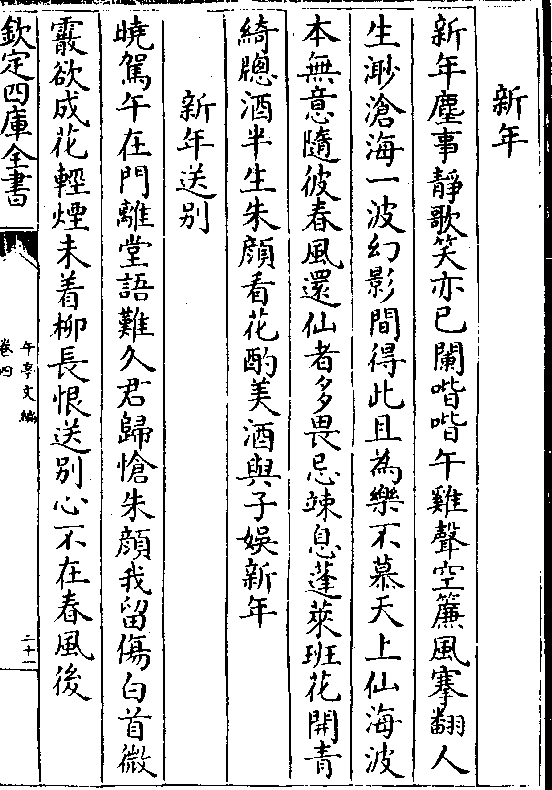 新年
新年塵事靜歌笑亦已闌喈喈午雞聲空簾風搴翻人
生渺滄海一波幻影間得此且為樂不慕天上仙海波
本無意隨彼春風還仙者多畏忌竦息蓬萊班花開青
綺牕酒半生朱顔看花酌美酒與子娯新年
新年送别
曉駕午在門離堂語難久君歸愴朱顔我留傷白首微
霰欲成花輕煙未着柳長恨送别心不在春風後
欽定四庫全書
午亭文編
卷四
二十一